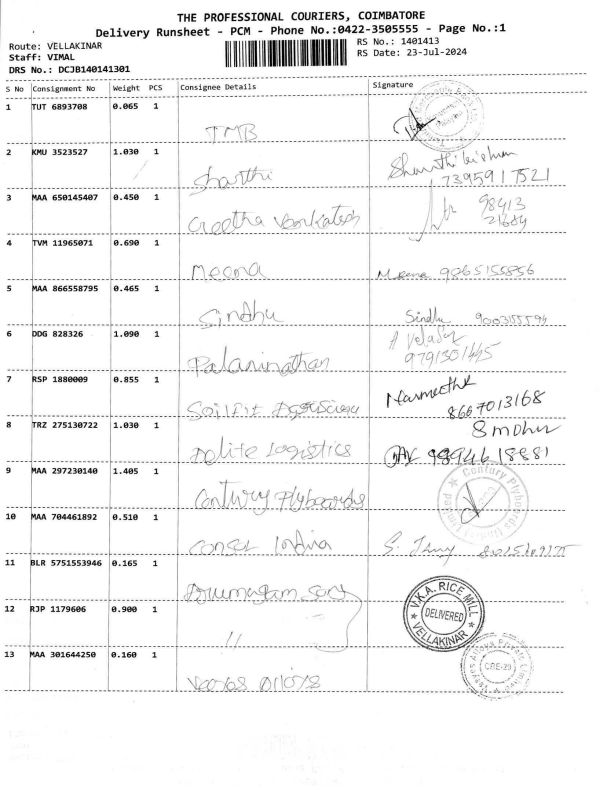 THE PROFESSIONAL COURIERS, COIMBATORE
Delivery Runsheet - PCM - Phone No.:0422-3505555 - Page No.:1
Route: VELLAKINAR
RS No.: 1401413
Staff: VIMAL
RS Date: 23-Jul-2024
DRS No.: DCJB140141301
S No Consignment No Weight PCS Consignee Details Signature
1 TUT 6893708 0.065 1
TMB
2 KMU 3523527 1.030 1
Sharthi
7395917521
3 MAA 650145407 0.450 1
Geetha Venkatesh
98413
21684
4 TVM 11965071 0.690 1
Meena Meena 9865155856
5 MAA 866558795 0.465 1
Sindhu Sindhu
6 DDG 828326 1.090 1
Palaninathan
9791301445
7 RSP 1880009 0.855 1
8667013168
8 TRZ 275130722 1.030 1
Delite Logistics
9894618881
9 MAA 297230140 1.405 1
Century Plyboards
Century Plyboards (India) Limited
10 MAA 704461892 0.510 1
India
11 BLR 5751553946 0.165 1
Arumugam
12 RJP 1179606 0.900 1
"
V.K.A. RICE MILL
DELIVERED
VELLAKINAR
13 MAA 301644250 0.160 1
CBE-29